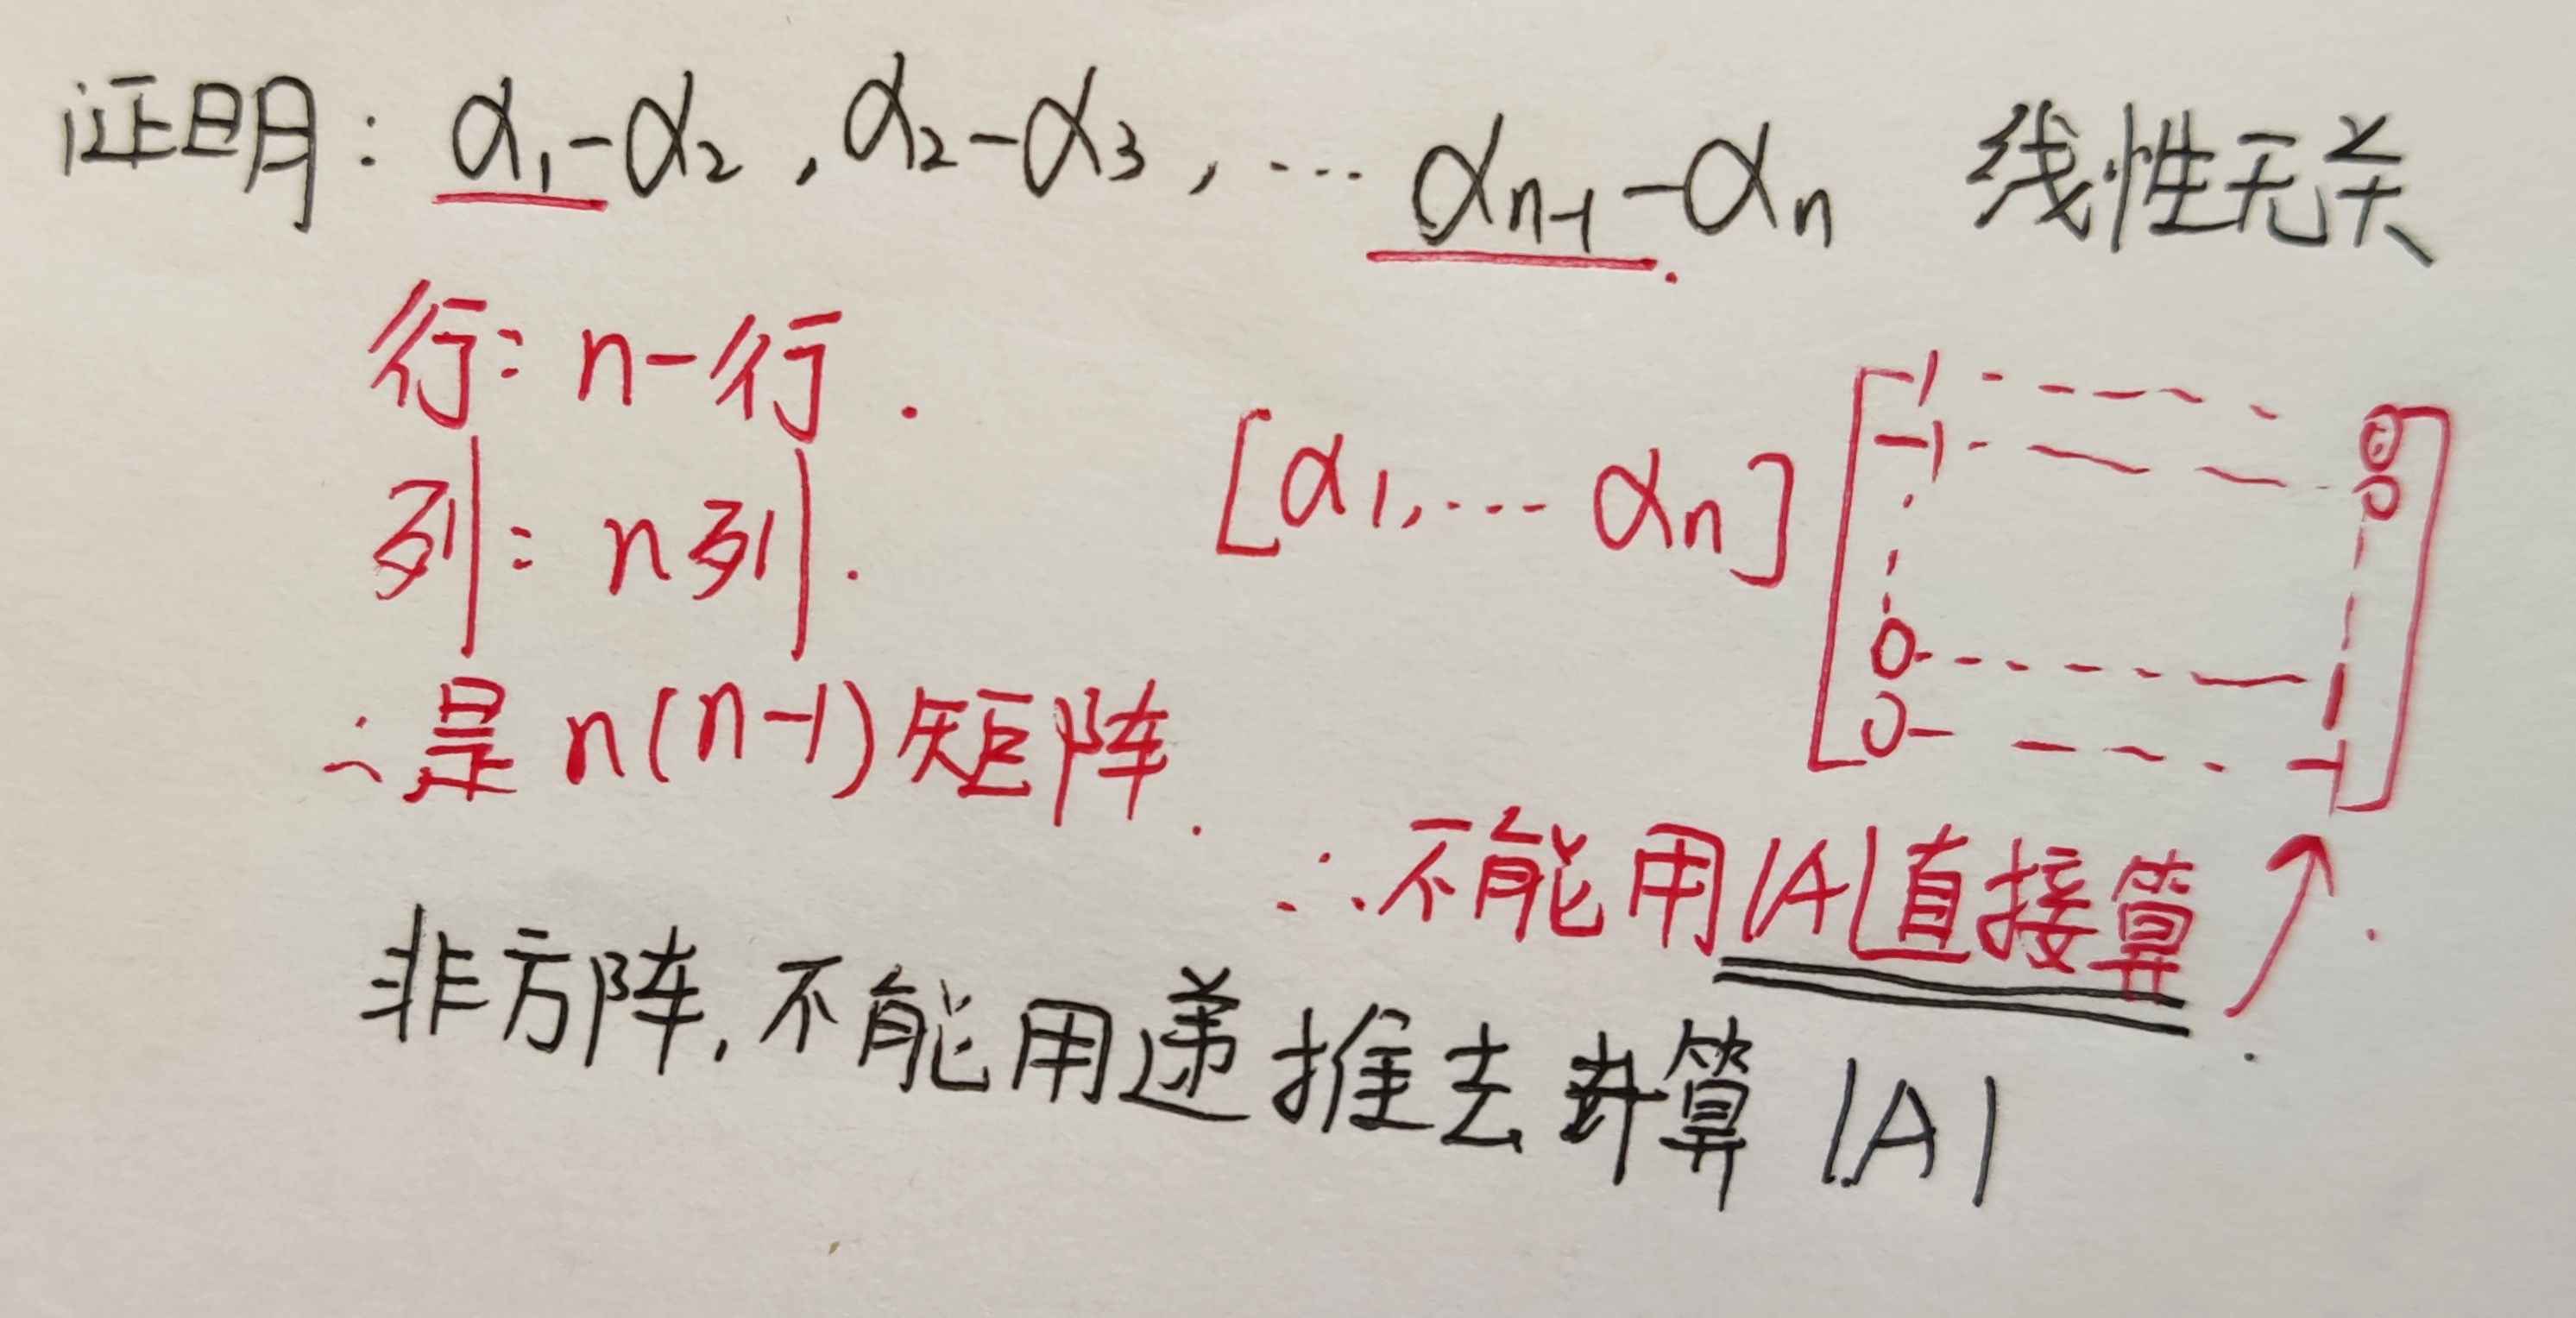 证明: α₁-α₂, α₂-α₃, … αₙ₋₁-αₙ 线性无关
行: n-行.
列: n列.
[α₁, … αₙ] [1 - - - 0
-1 - - - 0
0 - - - 1
0 - - - -1]
∴是n(n-1)矩阵.
∴不能用|A|直接算
非方阵,不能用递推去计算|A|